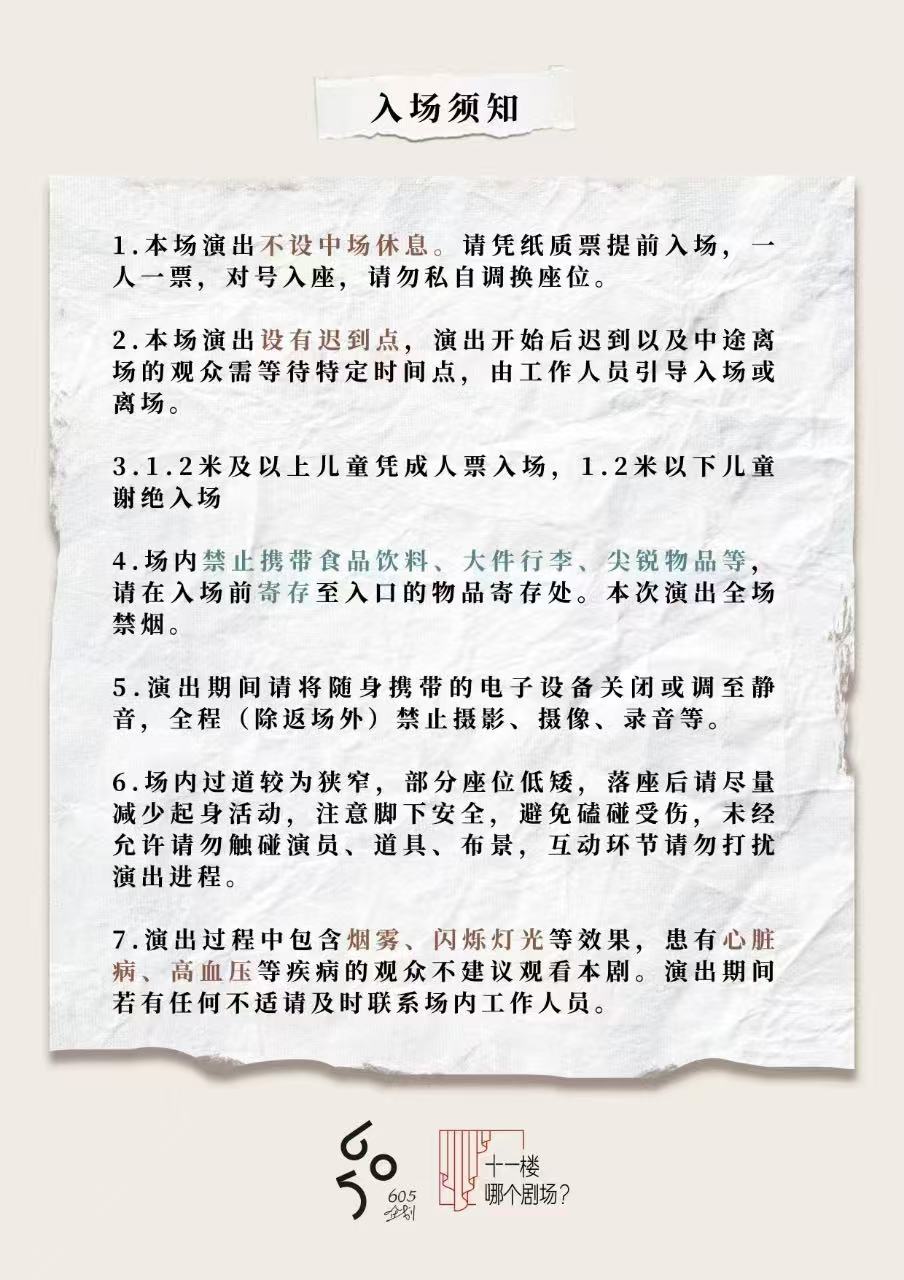 入场须知
1.本场演出不设中场休息。请凭纸质票提前入场，一
人一票，对号入座，请勿私自调换座位。
2.本场演出设有迟到点，演出开始后迟到以及中途离
场的观众需等待特定时间点，由工作人员引导入场或
离场。
3.1.2米及以上儿童凭成人票入场，1.2米以下儿童
谢绝入场
4.场内禁止携带食品饮料、大件行李、尖锐物品等，
请在入场前寄存至入口的物品寄存处。本次演出全场
禁烟。
5.演出期间请将随身携带的电子设备关闭或调至静
音，全程（除返场外）禁止摄影、摄像、录音等。
6.场内过道较为狭窄，部分座位低矮，落座后请尽量
减少起身活动，注意脚下安全，避免磕碰受伤，未经
允许请勿触碰演员、道具、布景，互动环节请勿打扰
演出进程。
7.演出过程中包含烟雾、闪烁灯光等效果，患有心脏
病、高血压等疾病的观众不建议观看本剧。演出期间
若有任何不适请及时联系场内工作人员。
605
企划
十一楼
哪个剧场？